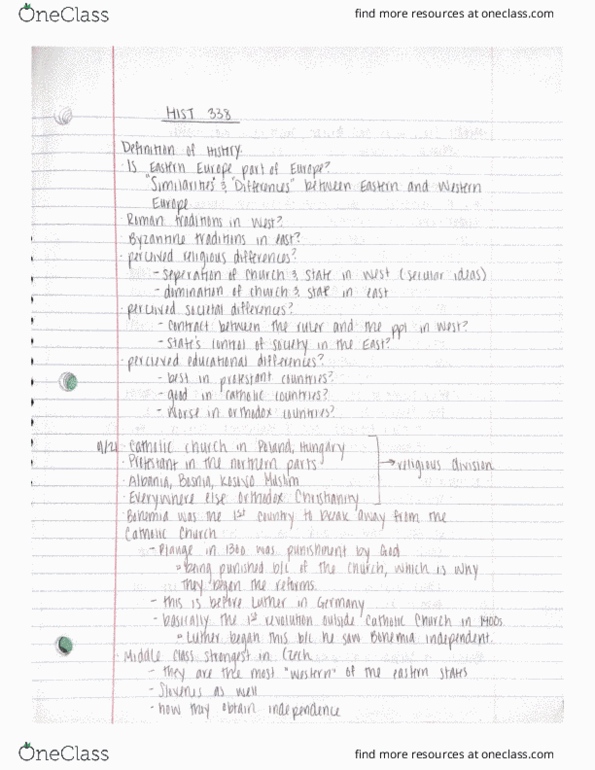 OneClass
find more resources at oneclass.com
HIST 338
Definition of History
· Is Eastern Europe part of Europe?
"Similarities" & "Differences" between Eastern and Western
Europe
· Roman traditions in West?
· Byzantine traditions in east?
· perceived religious differences?
- seperation of church & state in west (secular ideas)
- domination of church & state in east
· perceived societal differences?
- contract between the ruler and the ppl in west?
- state's control of society in the East?
· percieved educational differences?
- best in protestant countries?
- good in catholic countries?
- worse in orthodox countries?
· Catholic church in Poland, Hungary
· Protestant in the northern parts → religious division
· Albania, Bosnia, Kosovo Muslim
· Everywhere else Orthodox Christianity
· Bohemia was the 1st country to break away from the
Catholic Church
- Plauge in 1300 was punishment by God
° being punished b/c of the church, which is why
they began the reforms.
- this is before Luther in Germany
- basically the 1st revolution outside Catholic Church in 1400s
° Luther began this b/c he saw Bohemia independent.
· Middle class strongest in Czech
- they are the most "western" of the eastern states
- Slovenes as well
- how they obtain independence
OneClass
find more resources at oneclass.com